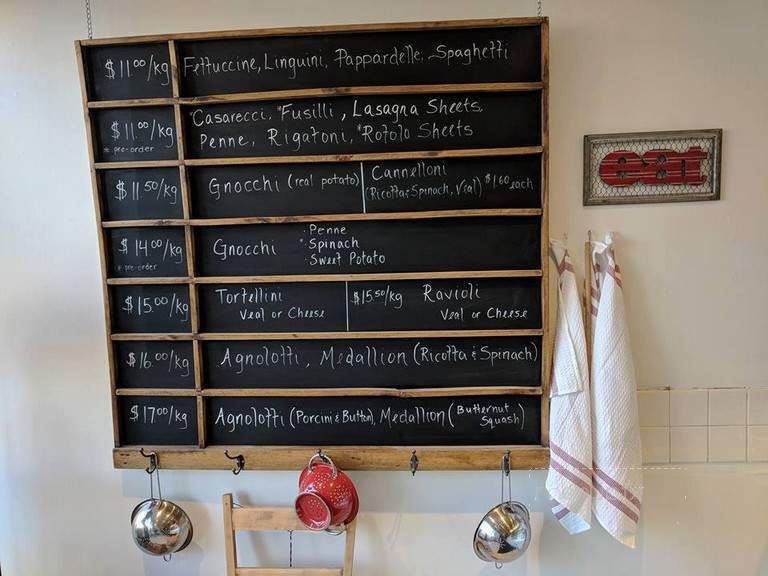 $11.00/kg Fettuccine, Linguini, Pappardelle, Spaghetti
$11.00/kg *Casarecci, *Fusilli, Lasagna Sheets,
* pre-order Penne, Rigatoni, *Rotolo Sheets
$11.50/kg Gnocchi (real potato) Cannelloni
(Ricotta & Spinach, Veal) $1.60 each
$14.00/kg Gnocchi · Penne
*· Spinach
* pre-order · Sweet Potato
$15.00/kg Tortellini $15.50/kg Ravioli
Veal or Cheese Veal or Cheese
$16.00/kg Agnolotti, Medallion (Ricotta & Spinach)
$17.00/kg Agnolotti (Porcini & Button), Medallion (Butternut
Squash)
eat